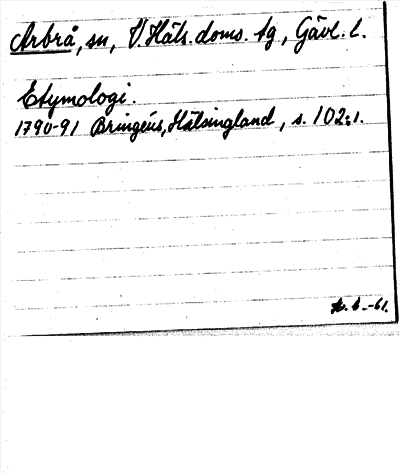 Arbrå, sn, V. Häls. doms. tg, Gävl. l.
Etymologi.
1790-91 Bringéus, Hälsingland, s. 102:1.
-61.